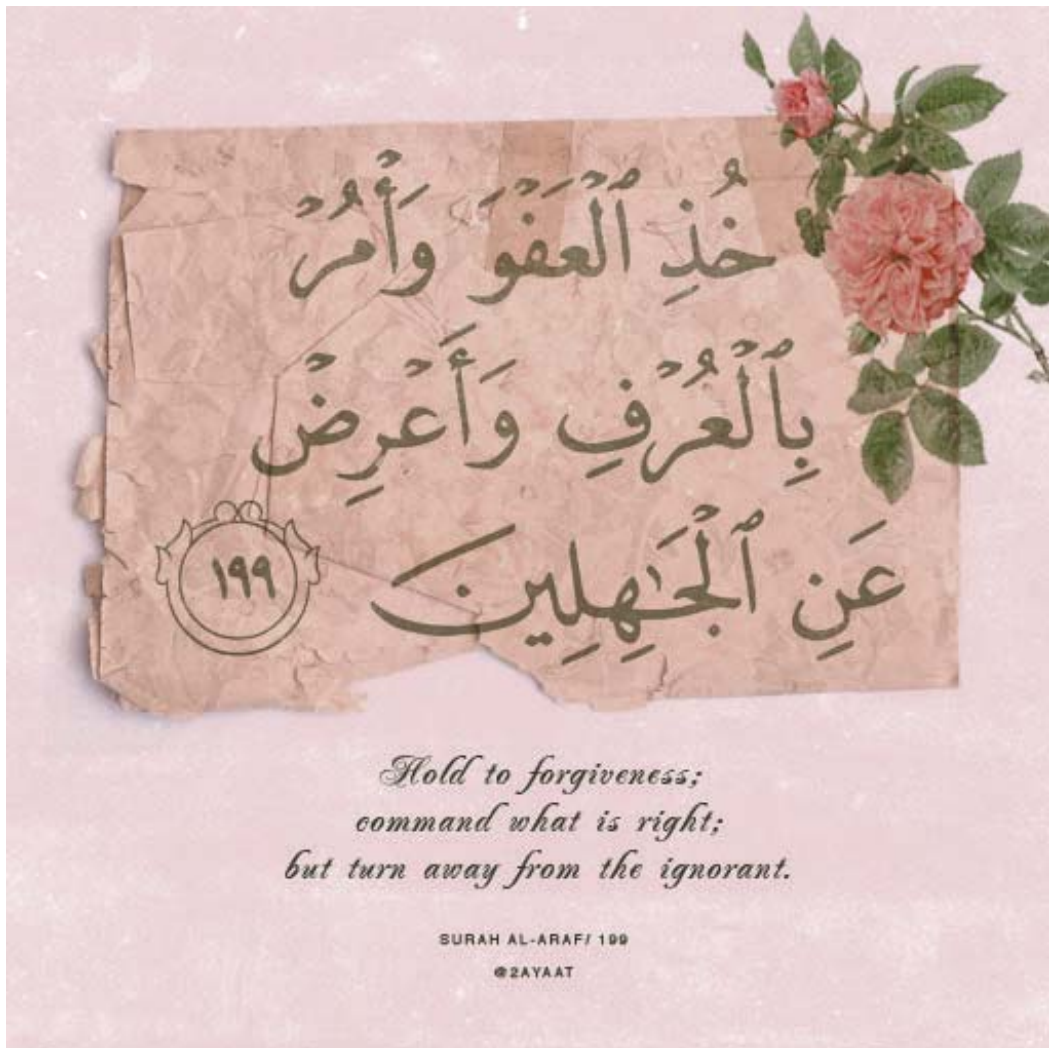 خُذِ ٱلْعَفْوَ وَأْمُرْ
بِٱلْعُرْفِ وَأَعْرِضْ
عَنِ ٱلْجَٰهِلِينَ ١٩٩
Hold to forgiveness;
command what is right;
but turn away from the ignorant.
SURAH AL-ARAF/ 199
@2AYAAT